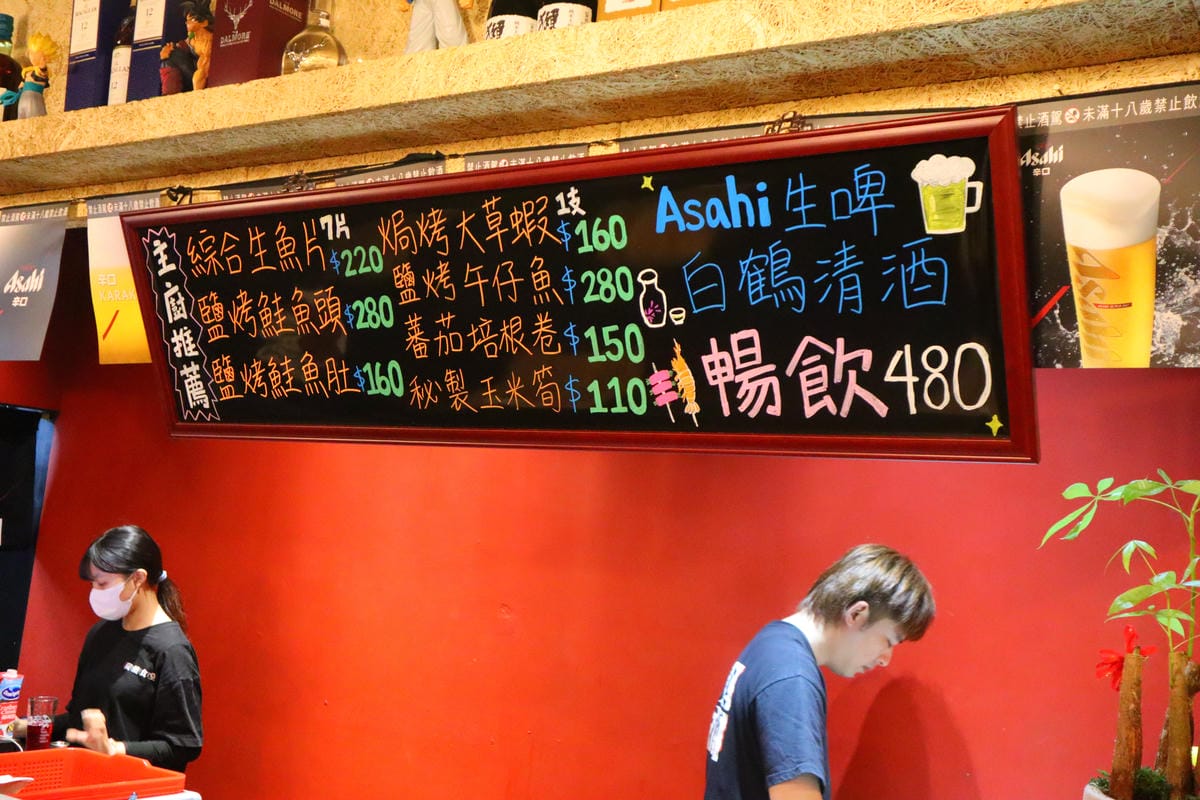 MACALLAN
12
12
DALMORE
禁止酒駕 未滿十八歲禁止飲酒
禁止酒駕 未滿十八歲禁止飲
Asahi
辛口
辛口
KARAK
Asahi
辛口
Asahi
主廚推薦
綜合生魚片 7片 $220
鹽烤鮭魚頭 $280
鹽烤鮭魚肚 $160
焗烤大草蝦 1支 $160
鹽烤午仔魚 $280
蕃茄培根卷 $150
秘製玉米筍 $110
Asahi 生啤
白鶴清酒
暢飲 480